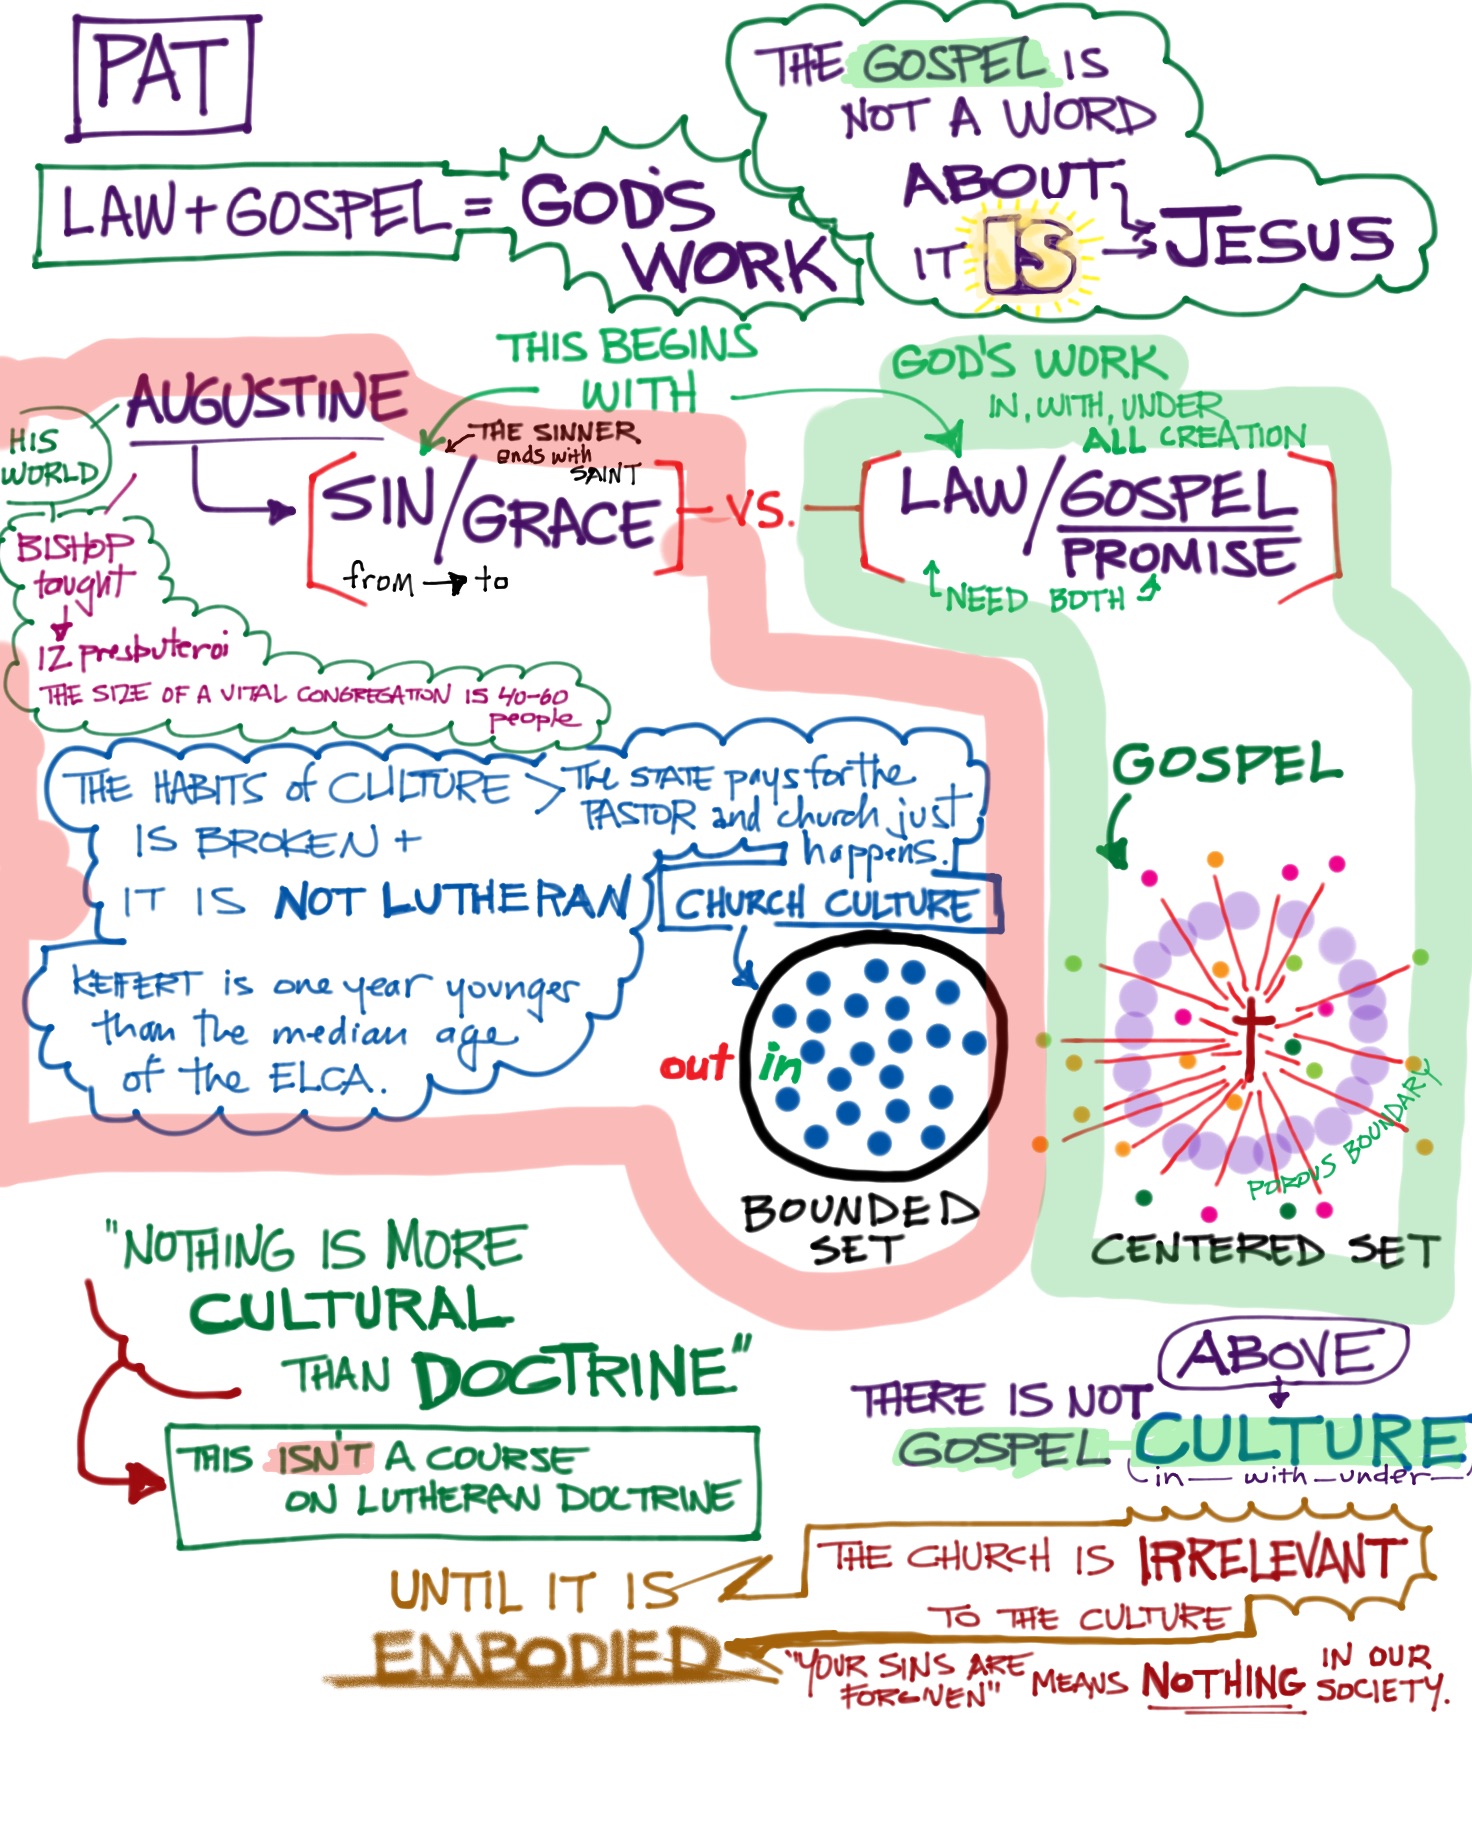 PAT
THE GOSPEL IS
NOT A WORD
ABOUT
IT IS JESUS
LAW + GOSPEL = GOD'S
WORK
THIS BEGINS
WITH
AUGUSTINE
HIS
WORLD
THE SINNER
ends with
SAINT
SIN/GRACE
from → to
VS.
GOD'S WORK
IN, WITH, UNDER
ALL CREATION
LAW/GOSPEL
PROMISE
NEED BOTH
BISHOP
taught
12 presbuteroi
THE SIZE OF A VITAL CONGREGATION IS 40-60
people
THE HABITS of CULTURE >
IS BROKEN +
IT IS NOT LUTHERAN
The STATE pays for the
PASTOR and church just
happens.
CHURCH CULTURE
KEIFERT is one year younger
than the median age
of the ELCA.
out in
BOUNDED
SET
GOSPEL
POROUS BOUNDARY
CENTERED SET
"NOTHING IS MORE
CULTURAL
THAN DOCTRINE"
THIS ISN'T A COURSE
ON LUTHERAN DOCTRINE
ABOVE
THERE IS NOT
GOSPEL - CULTURE
in — with — under —
THE CHURCH IS IRRELEVANT
TO THE CULTURE
UNTIL IT IS
EMBODIED
"YOUR SINS ARE
FORGIVEN" MEANS NOTHING IN OUR
SOCIETY.